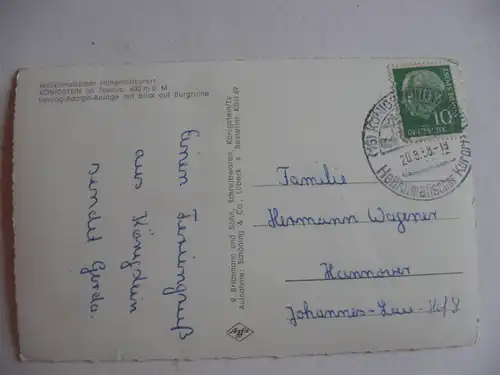 Heilklimatischer Höhenluftkurort
KÖNIGSTEIN im Taunus, 400 m ü. M
Herzog-Adolph-Anlage mit Blick auf Burgruine
Einen
Feriengruß
aus
Königstein
sendet Gerda.
R. Brückmann und Sohn, Schreibwaren, Königstein/Ts
Aufnahme: Schöning & Co., Lübeck • Bestellnr. Köst 69
Agfa
DEUTSCHE
10
(16) KÖNIGSTEIN
20.8.58.-19
Heilklimatischer Kurort
Familie
Hermann Wagener
Hannover
Johannes-